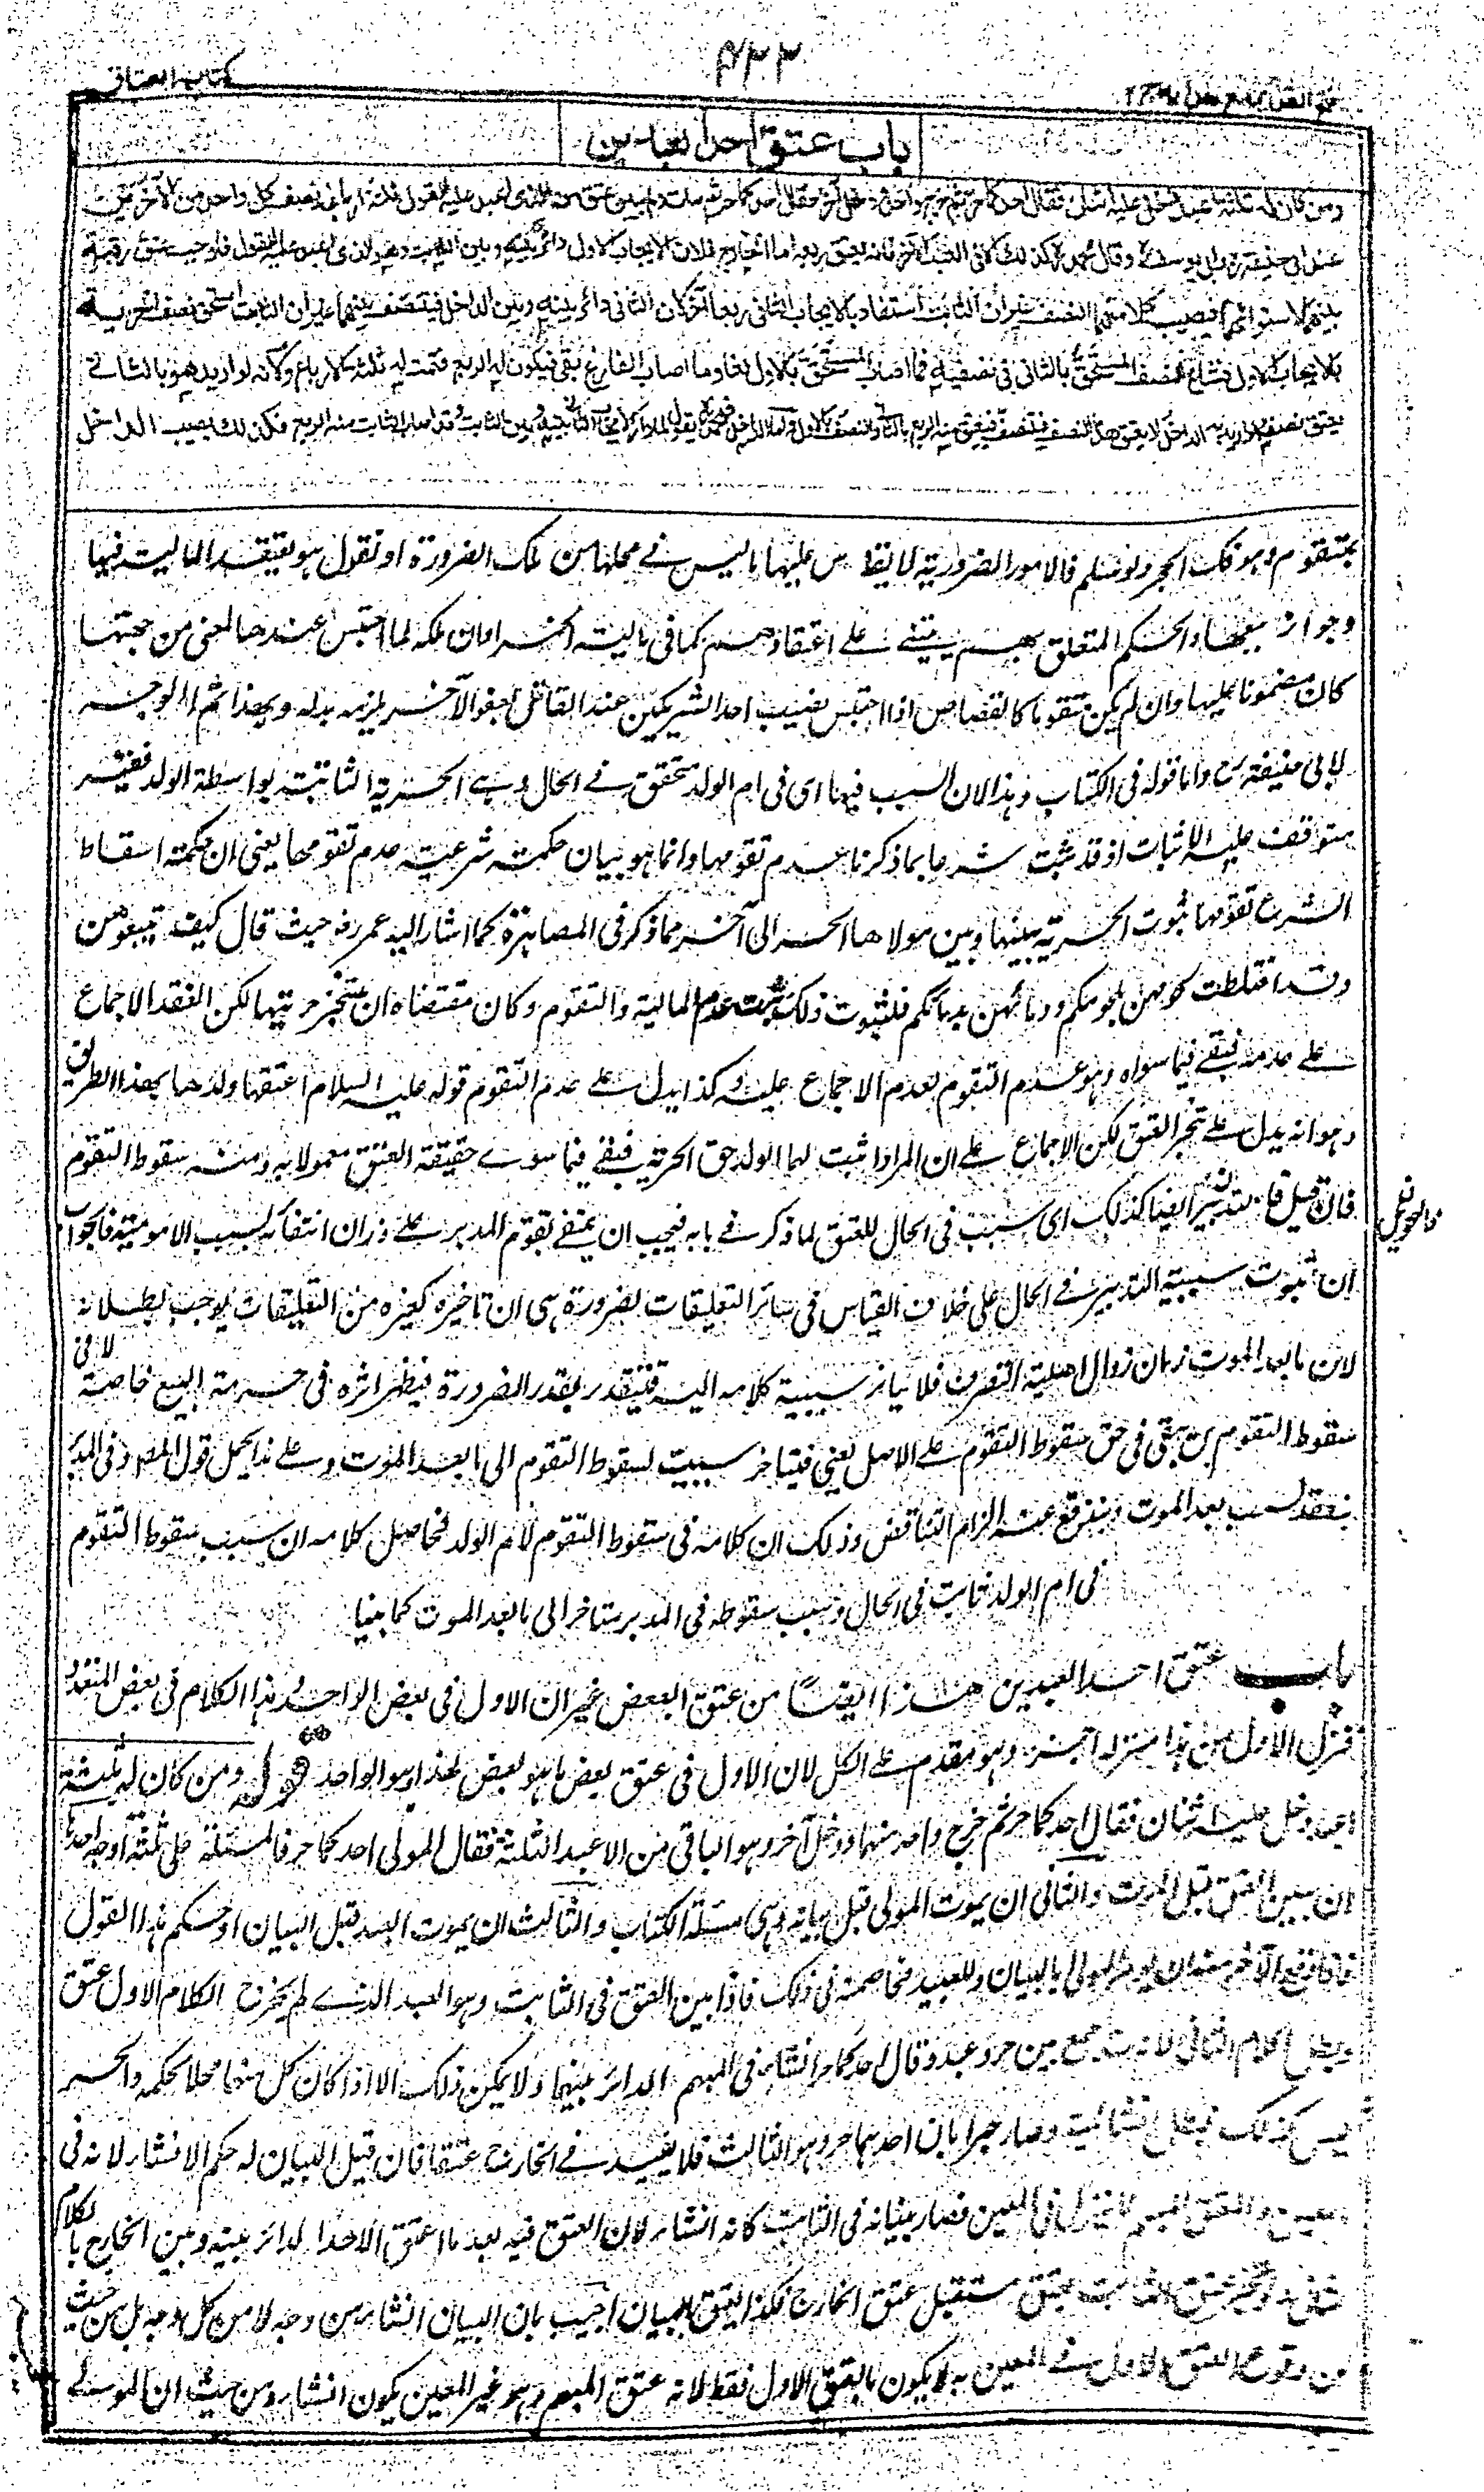 ٤٣٣
كتاب العتاق
باب عتق احد العبدين
ومن كان له ثلثة اعبد دخل عليه اثنان فقال احدكما حر ثم خرج واحد ودخل آخر فقال احدكما حر ثم مات ولم يبين عتق من الذى اعيد عليه القول ثلثة ارباعه ونصف كل واحد من الآخرين
عند ابي حنيفة وابي يوسف وقال محمد كذلك الا في العبد الآخر فانه يعتق ربعه اما الخارج فلان الايجاب الاول دائر بينه وبين الثابت وهو الذى اعيد عليه القول فاوجب عتق رقبة
بينهما لاستوائهما فيصيب كلا منهما النصف غير ان الثابت استفاد بالايجاب الثاني ربعا آخر لان الثاني دائر بينه وبين الداخل فيتنصف بينهما غير ان الثابت استحق نصف الحرية
بالايجاب الاول فشاع النصف المستحق بالثاني في نصفيه فما اصاب المستحق بالاول لغا وما اصاب الفارغ بقي فيكون له الربع فتمت له ثلثة الارباع ولانه لو اريد هو بالثاني
يعتق نصفه ولو اريد به الداخل لا يعتق هذا النصف فيتنصف فيعتق منه الربع بالثاني والنصف بالاول واما الداخل فمحمد يقول لما دار الايجاب الثاني بينه وبين الثابت وقد اصاب الثابت منه الربع فكذلك يصيب الداخل
بمتقوم وهو فك الحجر ولو سلم فالامور الضرورية لا يقاس عليها ما ليس في محلها من تلك الضرورة او نقول هو يعتقد المالية فيها
وجواز بيعها والحكم المتعلق بهم يبتنى على اعتقادهم كما في مالية الخمر او ان ملكه لما احتبس عندها لمعنى من جهتها
كان مضمونا عليها وان لم يكن متقوما كالقصاص اذا احتبس نصيب احد الشريكين عند القاتل بعفو الآخر يلزمه بدله وبهذا تم الوجه
لابي حنيفة رح واما قوله في الكتاب وهذا لان السبب فيها اى في ام الولد متحقق في الحال وهي الحرية الثابتة بواسطة الولد فغير
متوقف عليه الاثبات اذ قد ثبت شرعا بما ذكرنا عدم تقومها وانما هو بيان حكمة شرعية عدم تقومها يعني ان حكمة اسقاط
الشرع تقومها ثبوت الحرية بينها وبين مولاها الحر الى آخر مما ذكر في المصاهرة كما اشار اليه عمر رض حيث قال كيف تبيعوهن
وقد اختلطت لحومهن بلحومكم ودمائهن بدمائكم فلثبوت ذلك ثبت عدم المالية والتقوم وكان مقتضاه ان يتنجز حريتها لكن انعقد الاجماع
على عدمه فبقي فيما سواه وهو عدم التقوم لعدم الاجماع عليه وكذا يدل على عدم التقوم قوله عليه السلام اعتقها ولدها بهذا الطريق
وهو انه يدل على تنجز العتق لكن الاجماع على ان المراد اثبت لها الولد حق الحرية فبقي فيما سوى حقيقة العتق معمولا به ومنه سقوط التقوم
فان قيل فالتدبير ايضا كذلك اى سبب في الحال للعتق لما ذكر في بابه فيجب ان ينتفي تقوم المدبر على وزان انتفائه لسبب الامومية فالجواب
ان ثبوت سببية التدبير في الحال على خلاف القياس في سائر التعليقات لضرورة هي ان تاخيره كغيره من التعليقات يوجب بطلانه
لان ما بعد الموت زمان زوال اهلية التصرف فلا يتاخر سببية كلامه اليه فيتقدر بقدر الضرورة فيظهر اثره في حرمة البيع خاصة لا في
سقوط التقوم بل يبقى في حق سقوط التقوم على الاصل يعني فيتاخر سببيته لسقوط التقوم الى ما بعد الموت وعلى هذا يحمل قول المصنف وفي المدبر
ينعقد السبب بعد الموت ويندفع عنه الزام التناقض وذلك ان كلامه في سقوط التقوم لام الولد فحاصل كلامه ان سبب سقوط التقوم
في ام الولد ثابت في الحال وسبب سقوطه في المدبر متاخر الى ما بعد الموت كما بينا
باب عتق احد العبدين هذا ايضا من عتق البعض غير ان الاول في بعض الواحد وهذا الكلام في بعض المتعدد
فنزل الاول من هذا منزلة الجزء وهو مقدم على الكل لان الاول في عتق بعض ما هو بعض لهذا وهو الواحد قوله ومن كان له ثلثة
اعبد دخل عليه اثنان فقال احدكما حر ثم خرج واحد منهما ودخل آخر وهو الباقي من الاعبد الثلثة فقال المولى احدكما حر فالمسئلة على ثلثة اوجه احدها
ان يبين العتق قبل الموت والثاني ان يموت المولى قبل بيانه وهي مسئلة الكتاب والثالث ان يموت العبد قبل البيان وحكم هذا القول
يؤمر المولى بالبيان وللعبيد مخاصمته في ذلك فاذا بين العتق في الثابت وهو العبد الذى لم يخرج بالكلام الاول عتق
وبطل الكلام الثاني لانه جمع بين حر وعبد وقال احدكما حر انشاء في المبهم الدائر بينهما ولا يمكن ذلك الا اذا كان كل منهما محلا لحكمه والحر
ليس كذلك فبطل انشائيته وصار خبرا بان احدهما حر وهو الثالث فلا يفيد في الخارج عتقا فان قيل البيان له حكم الانشاء لانه في
المعين والعتق المبهم لا ينزل في المعين فصار بيانه في الثابت كانه انشاء لان العتق فيه بعد ما اعتق الاحد الدائر بينه وبين الخارج بالكلام
عتق الثابت بعتق مستقبل عتق الخارج فكذا يعتق بالبيان اجيب بان البيان انشاء من وجه لا من كل وجه بل من حيث
من وقوع العتق الاول في المعين به لا يكون بالعتق الاول فقط لانه عتق المبهم وهو غير المعين يكون انشاء ومن حيث ان المولى